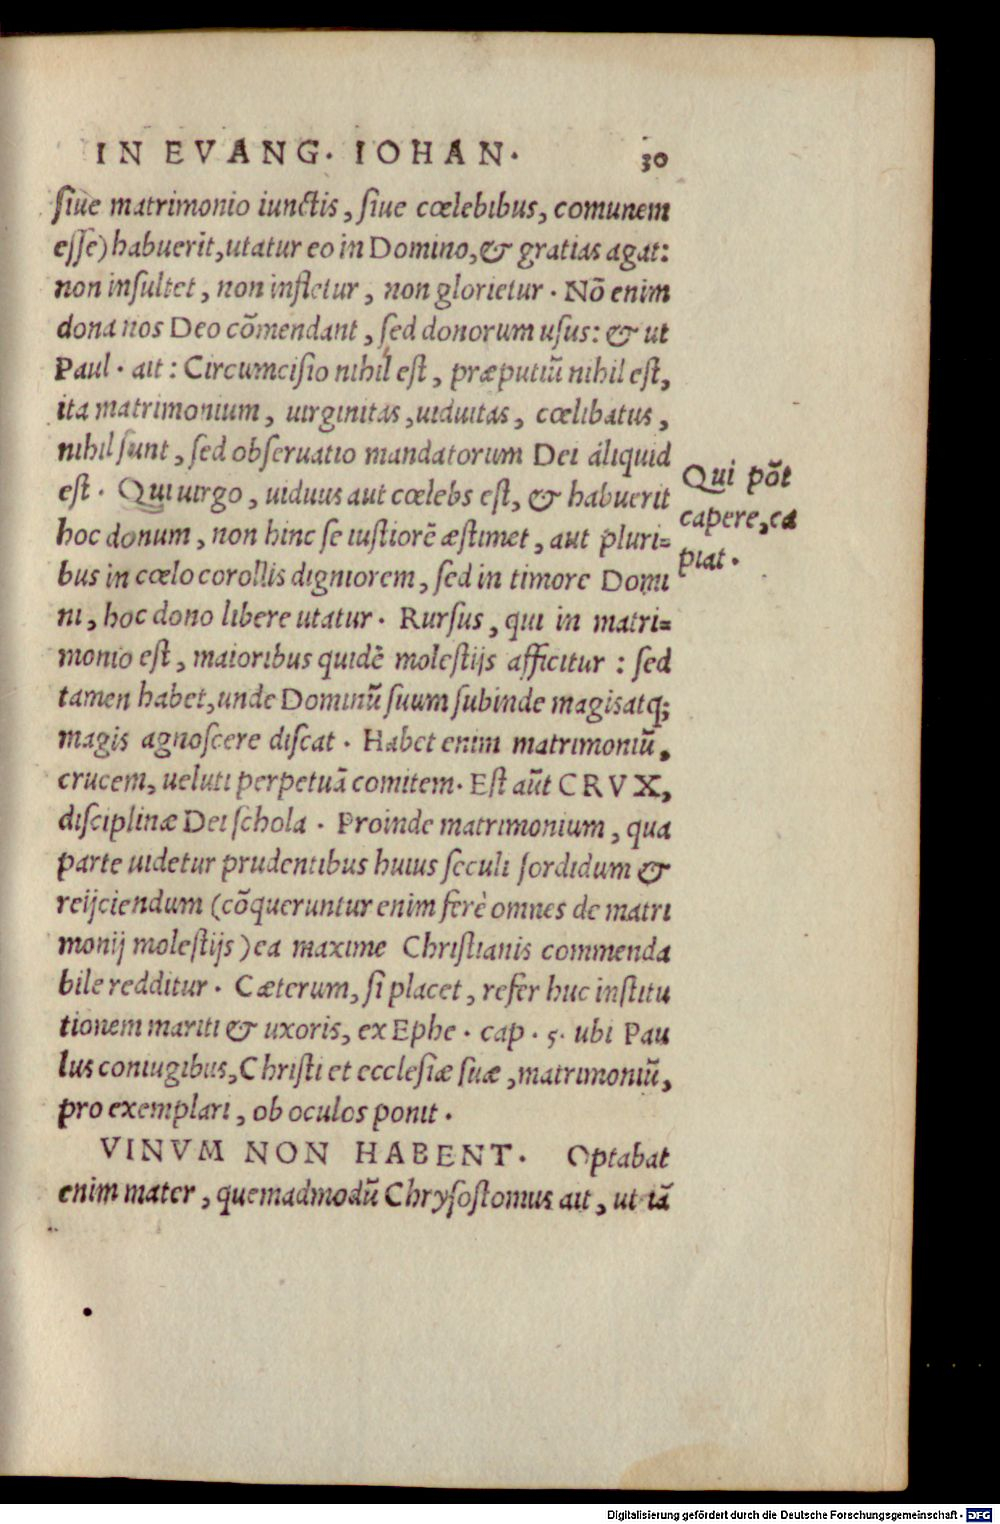 IN EVANG. IOHAN. 30
siue matrimonio iunctis, siue cœlebibus, comunem
esse) habuerit, utatur eo in Domino, & gratias agat:
non insultet, non infletur, non glorietur. Nõ enim
dona nos Deo cõmendant, sed donorum usus: & ut
Paul. ait: Circumcisio nihil est, præputiũ nihil est,
ita matrimonium, uirginitas, uiduitas, cœlibatus,
nihil sunt, sed obseruatio mandatorum Dei áliquid
est. Qui uirgo, uiduus aut cœlebs est, & habuerit
hoc donum, non hinc se iustiorẽ æstimet, aut pluri=
bus in cœlo corollis digniorem, sed in timore Domi
ni, hoc dono libere utatur. Rursus, qui in matri=
monio est, maioribus quidẽ molestijs afficitur: sed
tamen habet, unde Dominũ suum subinde magis atq;
magis agnoscere discat. Habet enim matrimoniũ,
crucem, ueluti perpetuã comitem. Est aũt CRVX,
disciplinæ Dei schola. Proinde matrimonium, qua
parte uidetur prudentibus huius seculi sordidum &
reijciendum (cõqueruntur enim ferè omnes de matri
monij molestijs) ea maxime Christianis commenda
bile redditur. Cæterum, si placet, refer huc institu
tionem mariti & uxoris, ex Ephe. cap. 5. ubi Pau
lus coniugibus, Christi et ecclesiæ suæ, matrimoniũ,
pro exemplari, ob oculos ponit.
VINVM NON HABENT. Optabat
enim mater, quemadmodũ Chrysostomus ait, ut iã
Qui põt
capere, ca
piat.
Digitalisierung gefördert durch die Deutsche Forschungsgemeinschaft - DFG